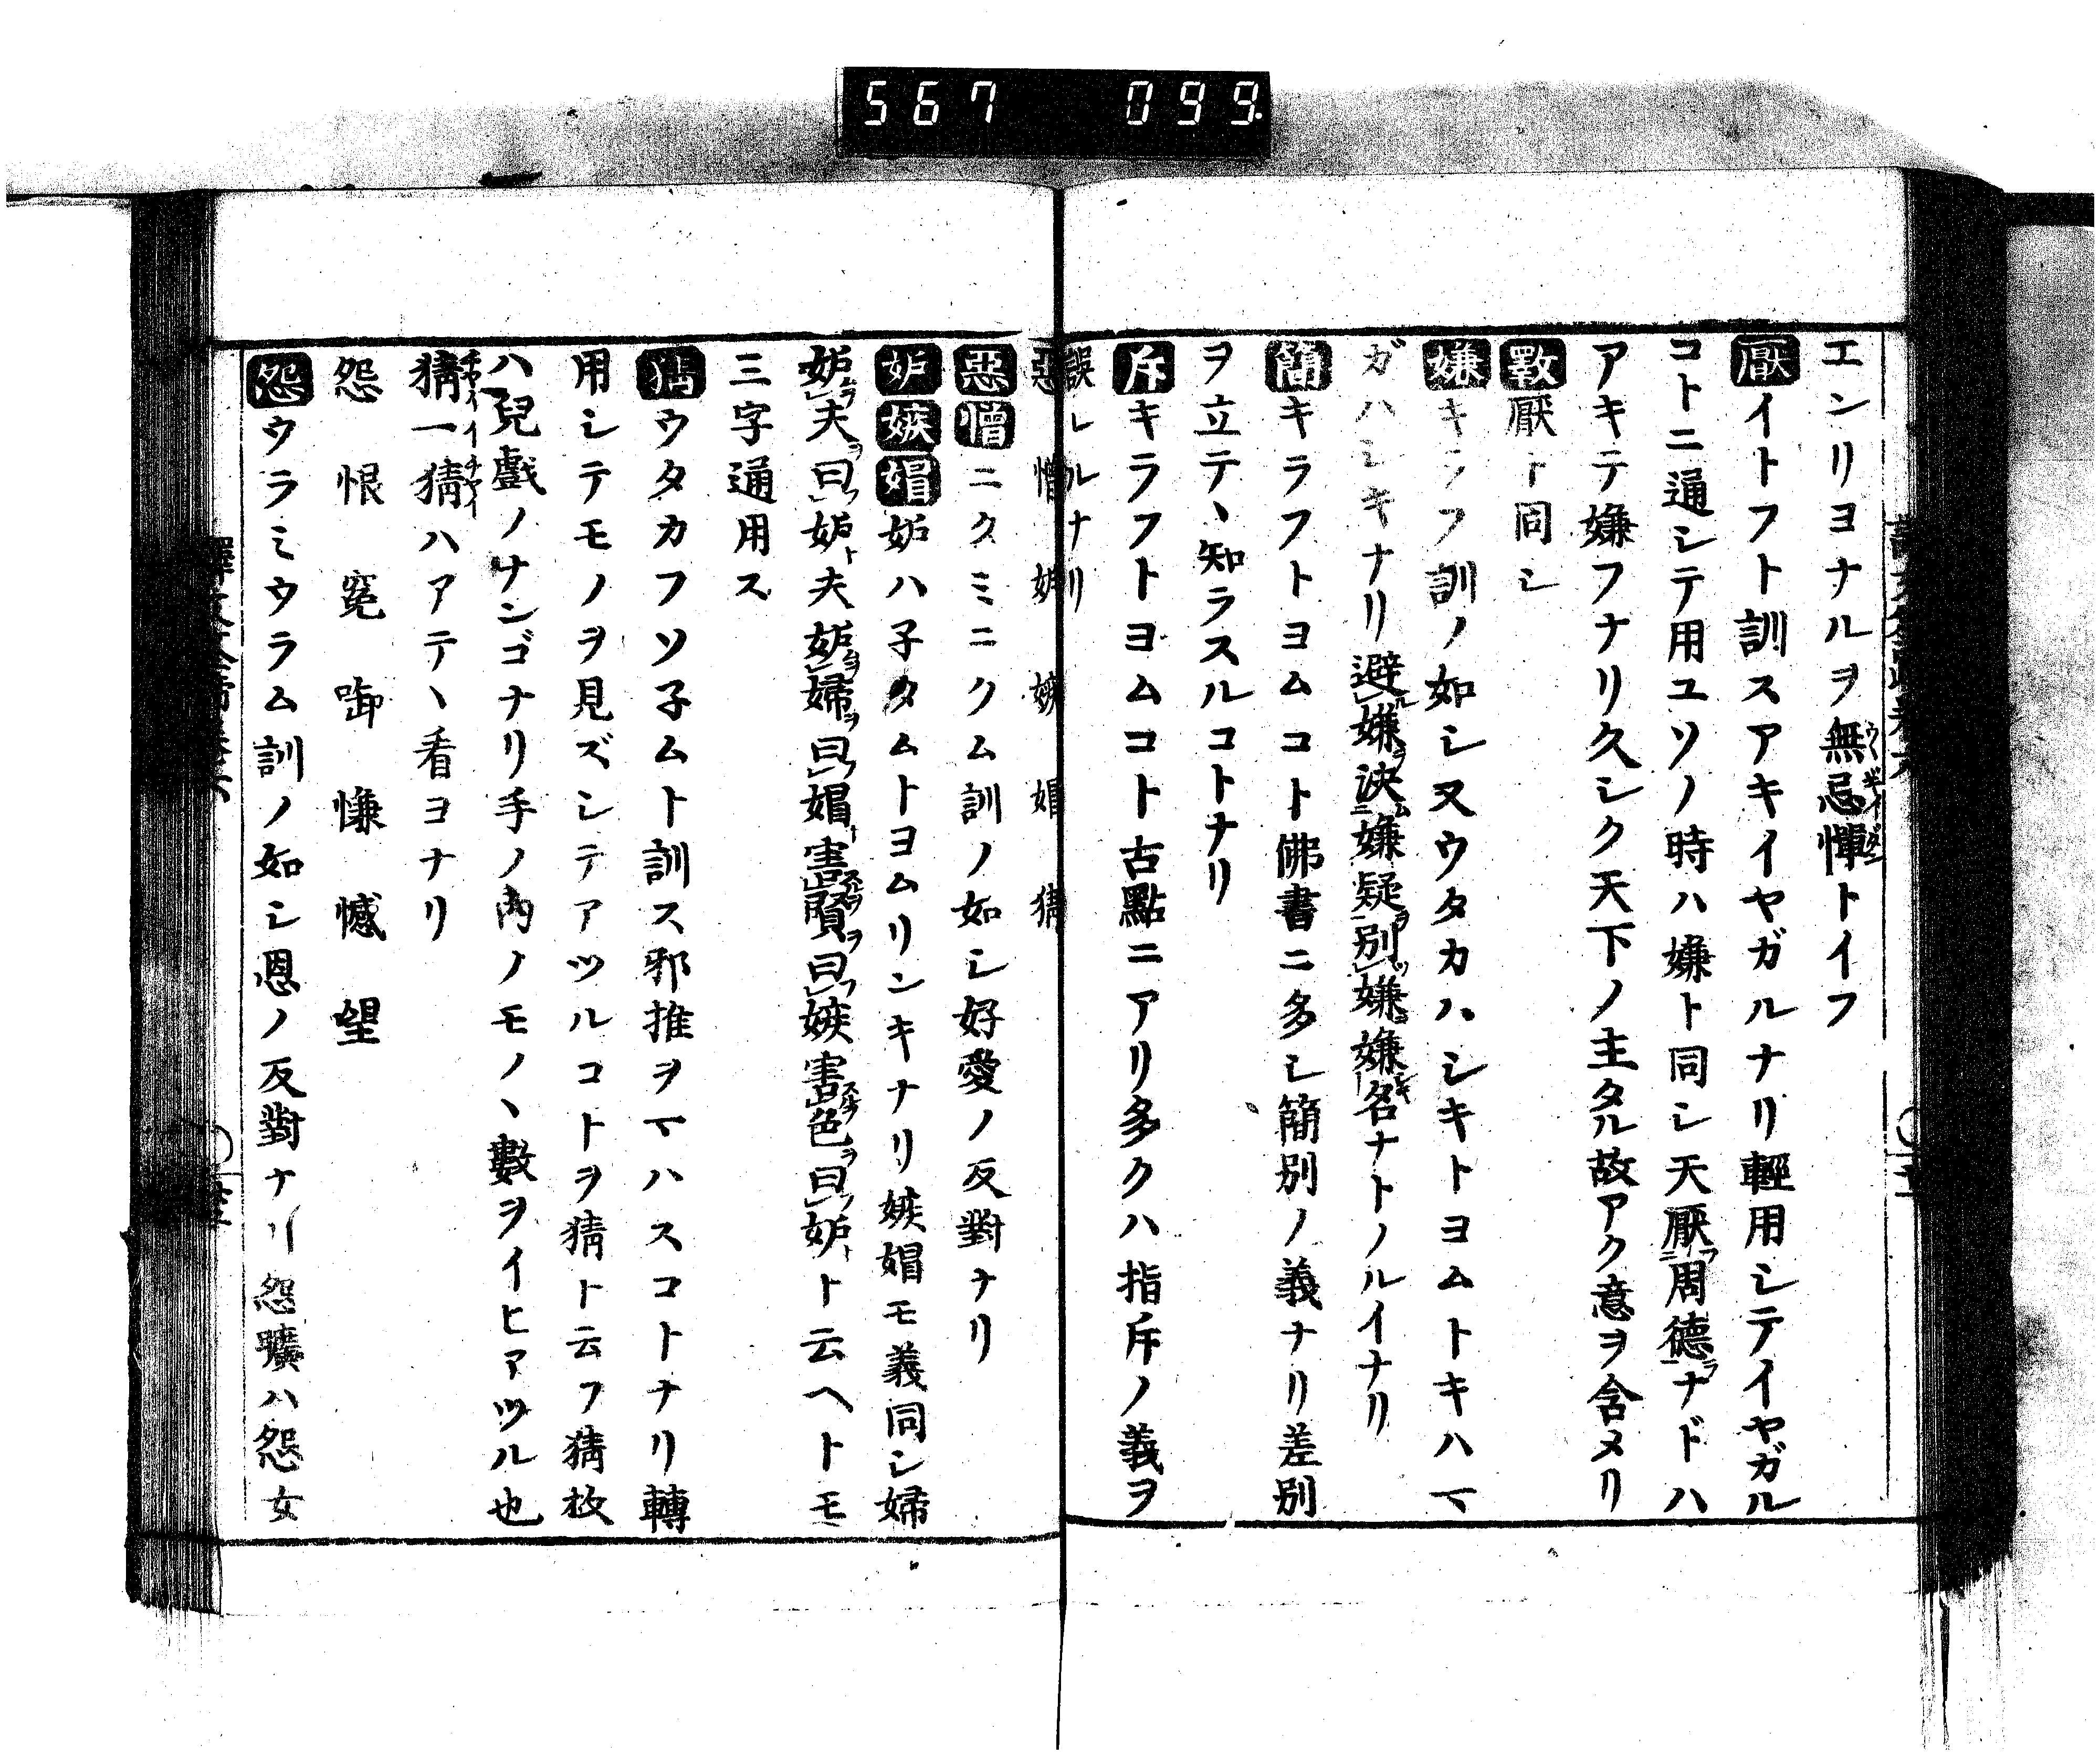 567 099
エンリヨナルヲ無忌憚トイフ
厭イトフト訓スアキイヤガルナリ輕用シテイヤガル
コトニ通シテ用ユソノ時ハ嫌ト同シ天厭フ二周德ヲ一ナドハ
アキテ嫌フナリ久シク天下ノ主タル故アク意ヲ含メリ
斁厭ト同シ
嫌キラフ訓ノ如シ又ウタカハシキトヨムトキハマ
ガハシキナリ避ルレ嫌ヲ決ム二嫌疑ヲ一別ツレ嫌ヲ嫌キ名ナトノルイナリ
簡キラフトヨムコト佛書ニ多シ簡別ノ義ナリ差別
ヲ立テヽ知ラスルコトナリ
斥キラフトヨムコト古點ニアリ多クハ指斥ノ義ヲ
誤レルナリ
惡憎妬嫉媢猜
惡憎ニクミニクム訓ノ如シ好愛ノ反對ナリ
妒嫉媢妒ハ子タムトヨムリンキナリ嫉媢モ義同シ婦
妒ムレ夫ヲ曰フレ妒ト夫妒ムレ婦ヲ曰フレ媢ト害スルレ賢ヲ曰フレ嫉ト害スルレ色ヲ曰フレ妒トト云ヘトモ
三字通用ス
猜ウタカフソ子ムト訓ス邪推ヲマハスコトナリ轉
用シテモノヲ見ズシテアツルコトヲ猜ト云フ猜枚
ハ兒戲ノナンゴナリ手ノ內ノモノヽ數ヲイヒアツル也
猜一猜ハアテヽ看ヨナリ
怨恨寃啣慊憾望
怨ウラミウラム訓ノ如シ恩ノ反對ナリ怨曠ハ怨女